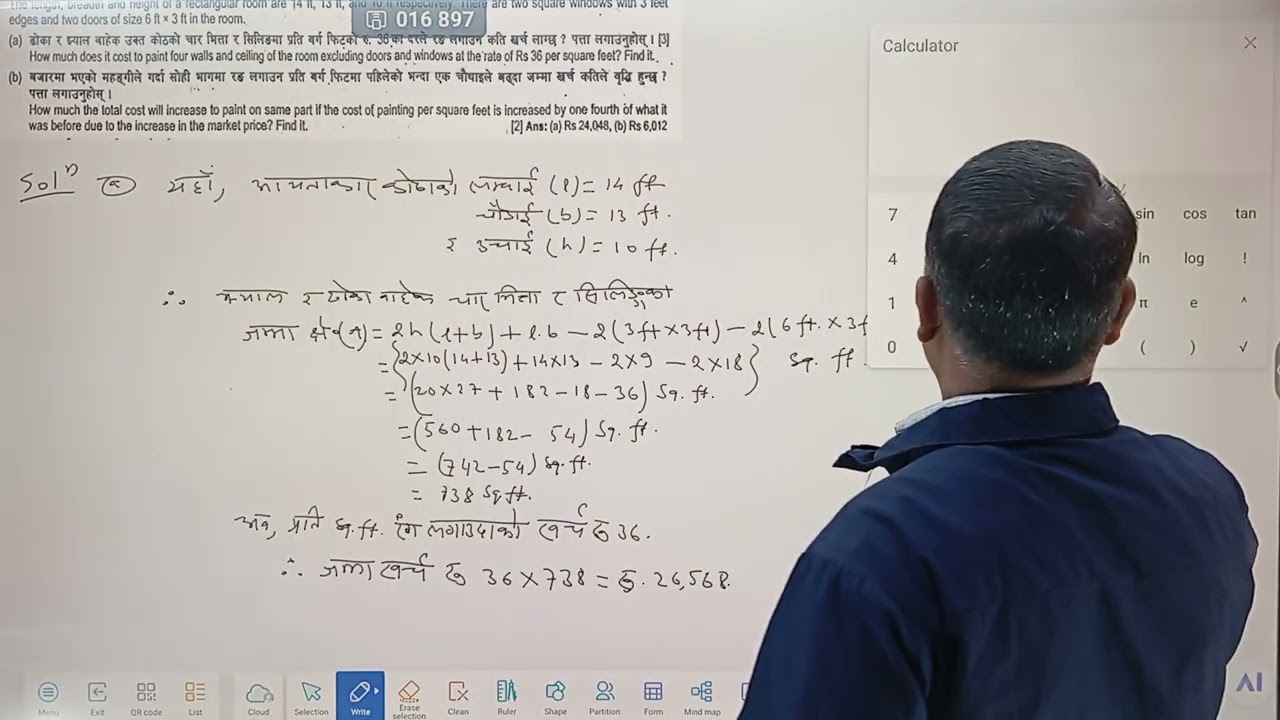 The length, breadth and height of a rectangular room are 14 ft, 13 ft, and 10 ft respectively. There are two square windows with 3 feet
edges and two doors of size 6 ft × 3 ft in the room.
016 897
(a) ढोका र झ्याल बाहेक उक्त कोठाको चार भित्ता र सिलिङमा प्रति वर्ग फिटको रु. 36 का दरले रङ लगाउन कति खर्च लाग्छ ? पत्ता लगाउनुहोस् । [3]
How much does it cost to paint four walls and ceiling of the room excluding doors and windows at the rate of Rs 36 per square feet? Find it.
(b) बजारमा भएको महङ्गीले गर्दा सोही भागमा रङ लगाउन प्रति वर्ग फिटमा पहिलेको भन्दा एक चौथाइले बढ्दा जम्मा खर्च कतिले वृद्धि हुन्छ ?
पत्ता लगाउनुहोस् ।
How much the total cost will increase to paint on same part if the cost of painting per square feet is increased by one fourth of what it
was before due to the increase in the market price? Find it. [2] Ans: (a) Rs 24,048, (b) Rs 6,012
Solⁿ (a) यहाँ, आयताकार कोठाको लम्बाई (l) = 14 ft
चौडाई (b) = 13 ft.
र उचाई (h) = 10 ft.
∴ झ्याल र ढोका बाहेक चार भित्ता र सिलिङको
जम्मा क्षे(A) = 2h(l+b) + l.b − 2(3ft×3ft) − 2(6 ft. × 3f
= {2×10(14+13) + 14×13 − 2×9 − 2×18} Sq. ft.
= (20×27 + 182 − 18 − 36) Sq. ft.
= (560 + 182 − 54) Sq. ft.
= (742 − 54) Sq. ft.
= 738 Sq ft.
अब, प्रति Sq. ft. रंग लगाउदाको खर्च रु 36.
∴ जम्मा खर्च रु 36 × 738 = रु. 26,568.
Calculator
7 sin cos tan
4 ln log !
1 π e ^
0 ( ) √
Menu Exit QR code List Cloud Selection Write Erase selection Clean Ruler Shape Partition Form Mind map
AI